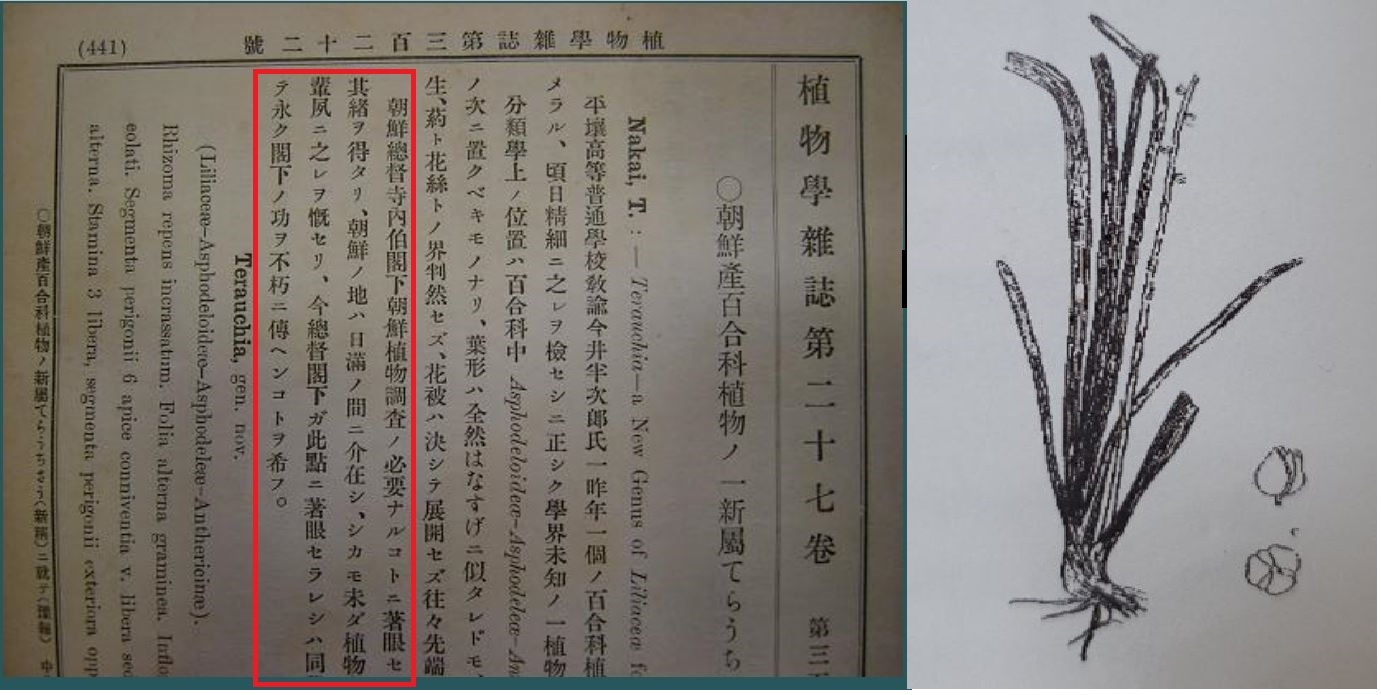 植物學雜誌第三百二十二號
(441)
植物學雜誌第二十七卷 第三
〇朝鮮產百合科植物ノ一新屬てらうち
Nakai, T. : — Terauchia—a New Genus of Liliaceæ
平壤高等普通學校敎諭今井半次郞氏一昨年一個ノ百合科植
メラル、頃日精細ニ之レヲ檢セシニ正シク學界未知ノ一植物
分類學上ノ位置ハ百合科中 Asphodeloideæ-Asphodeleæ-An
ノ次ニ置クベキモノナリ、葉形ハ全然はなすげニ似タレドモ、
生、葯ト花絲トノ界判然セズ、花被ハ決シテ展開セズ往々先端
朝鮮總督寺內伯閣下朝鮮植物調査ノ必要ナルコトニ著眼セ
其緒ヲ得タリ、朝鮮ノ地ハ日滿ノ間ニ介在シ、シカモ未ダ植物
輩夙ニ之レヲ慨セリ、今總督閣下ガ此點ニ著眼セラレシハ同
テ永ク閣下ノ功ヲ不朽ニ傳ヘンコトヲ希フ。
Terauchia, gen. nov.
(Liliaceæ-Asphodeloideæ-Asphodeleæ-Anthericinæ).
Rhizoma repens incrassatum. Folia alterna graminea. Inflo
eolati. Segmenta perigonii 6 apice conniventia v. libera sec
alterna. Stamina 3 libera, segmenta perigonii exteriora opp
〇朝鮮產百合科植物ノ新屬てらうちさう(新稱)ニ就テ